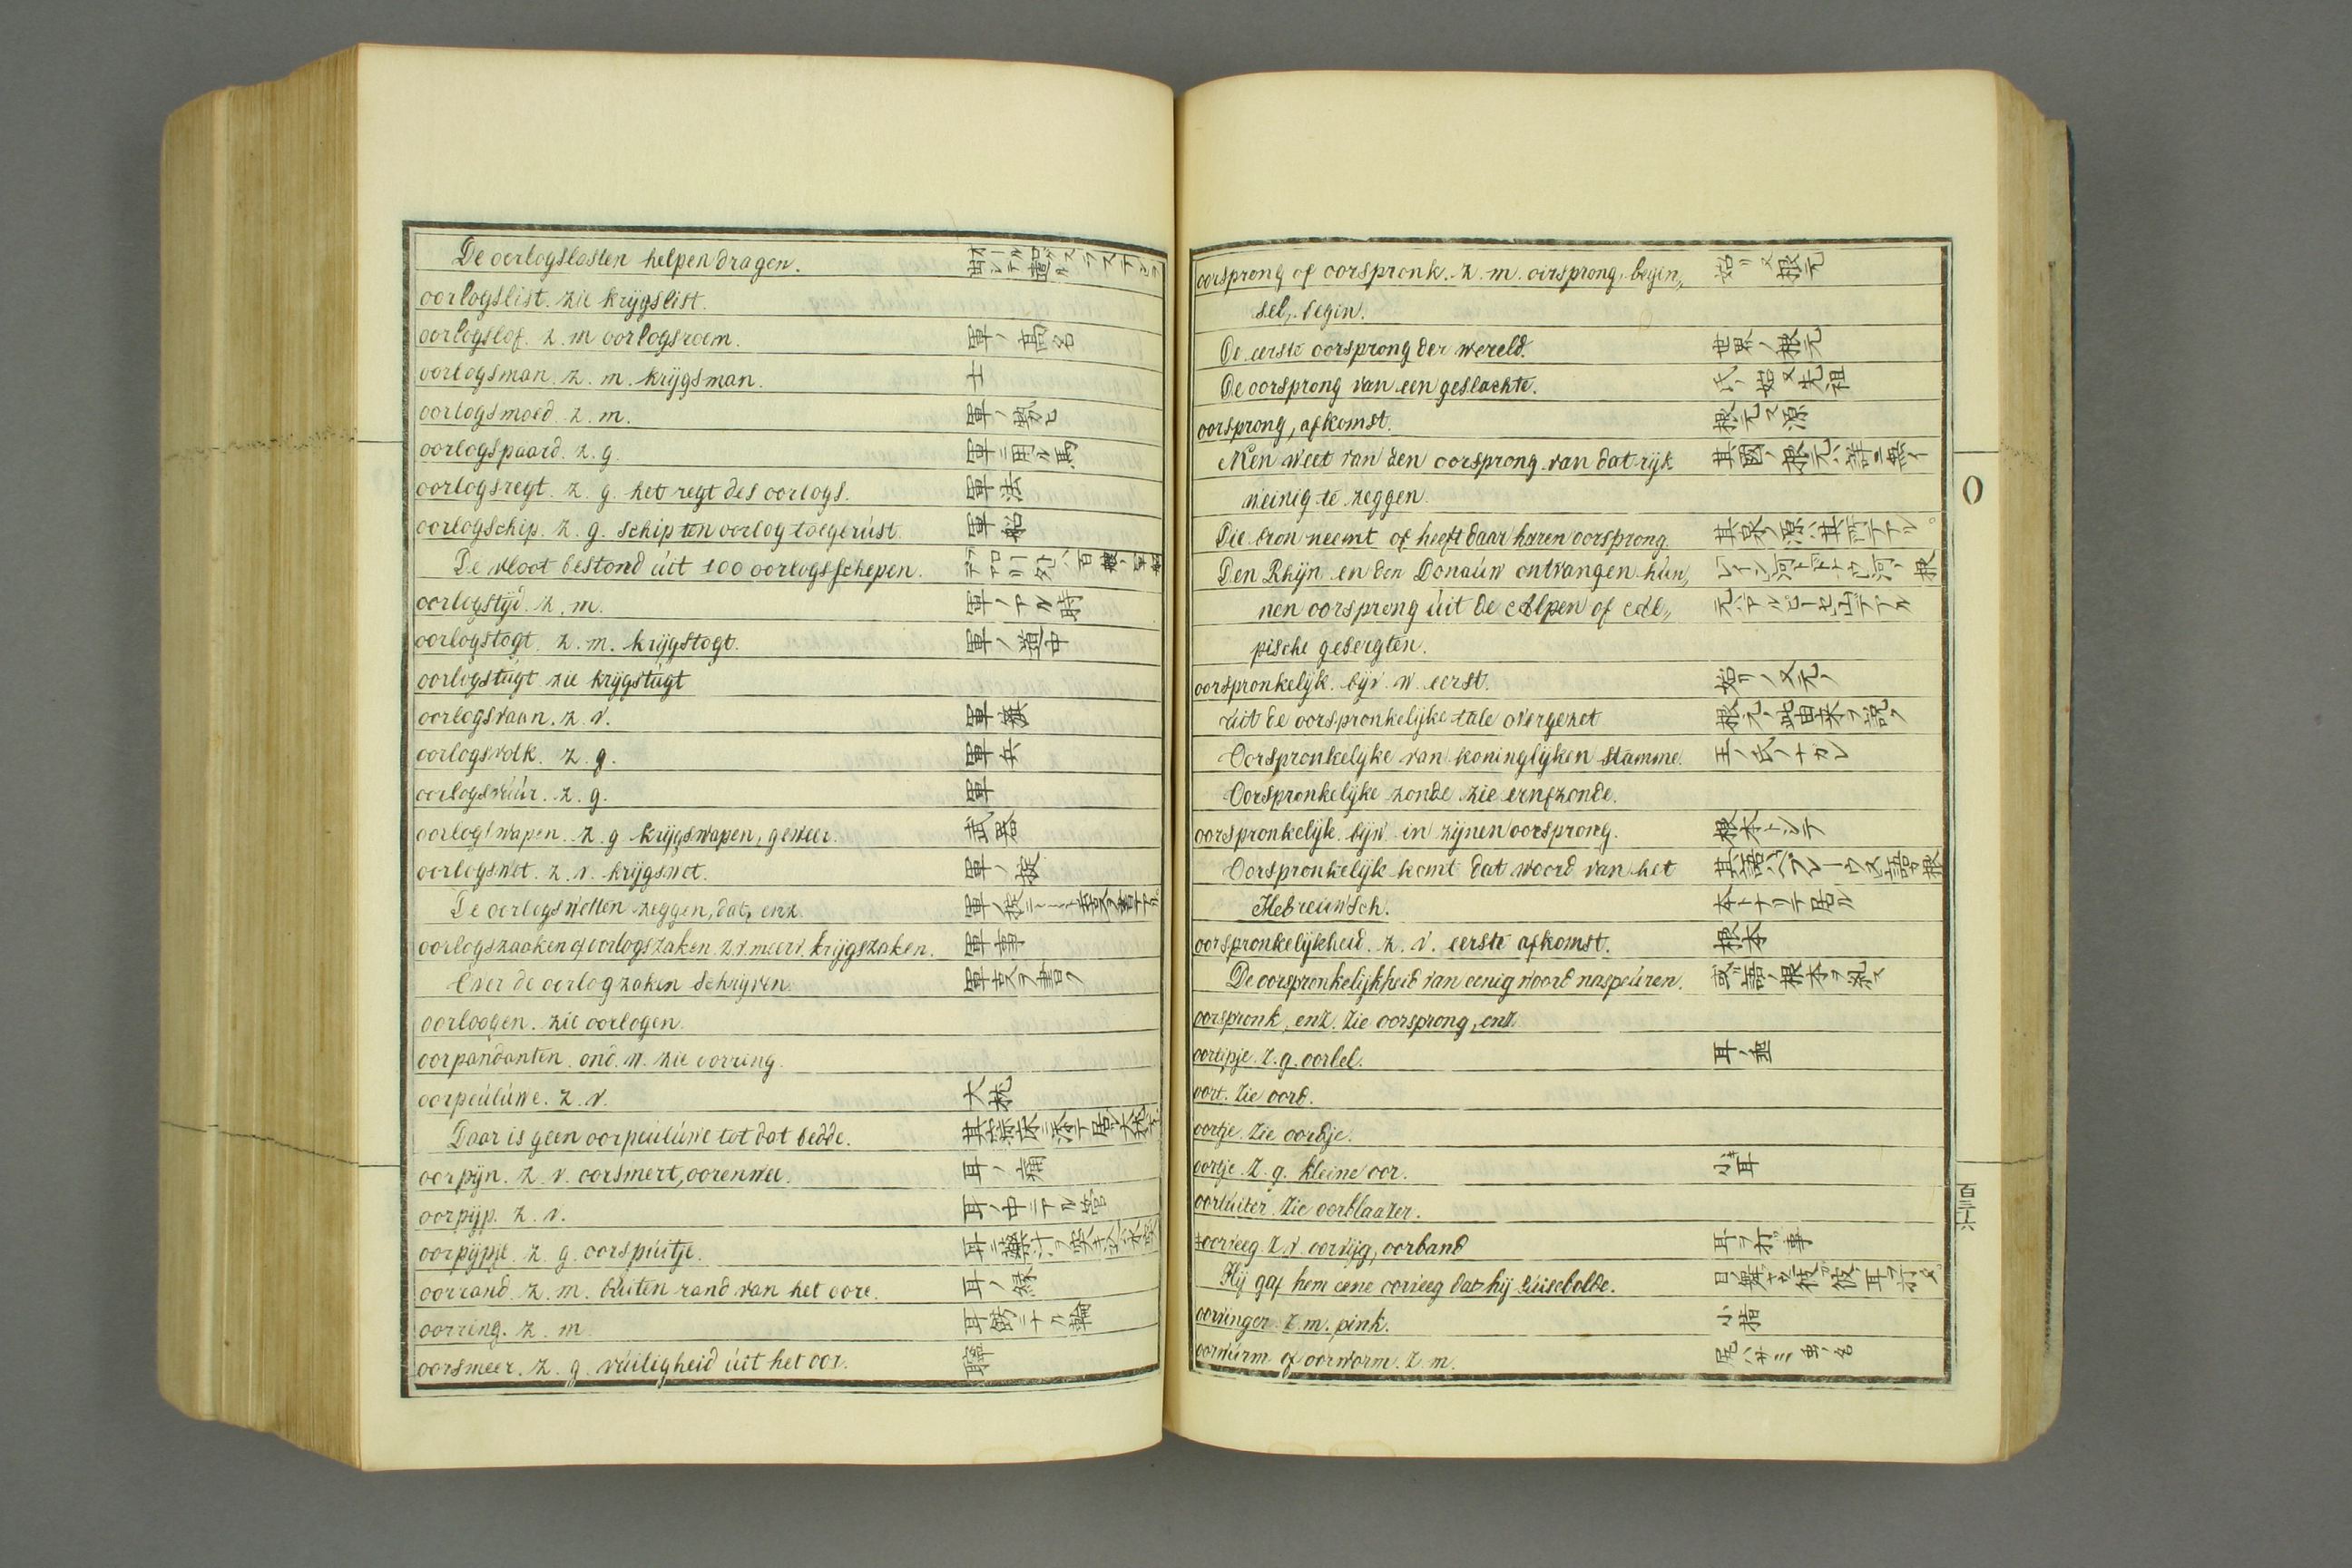 De oorlogslasten helpen dragen.
oorlogslist. zie krijgslist.
oorlogslof. z. m oorlogsroem. 軍ノ高名
oorlogsman. z. m. krijgsman. 士
oorlogsmoed. z. m. 軍ノ
oorlogspaard. z. g. 軍ニ用ル馬
oorlogsregt. z. g. het regt des oorlogs. 軍法
oorlogschip. z. g. schip ten oorlog toegerúst. 軍船
De vloot bestond úit 100 oorlogsschepen.
oorlogstijd. z. m. 軍ノアル時
oorlogstogt. z. m. krijgstogt. 軍ノ道中
oorlogstúgt zie krijgstúgt
oorlogsvaan. z. v. 軍旗
oorlogsvolk. z. g. 軍兵
oorlogsvúúr. z. g. 軍
oorlogswapen. z. g krijgswapen, geweer. 武器
oorlogswet. z. v. krijgswet. 軍ノ掟
De oorlogswetten zeggen, dat, enz.
oorlogszaaken of oorlogszaken z.v. meerv. krijgszaken. 軍事
Over de oorlogzaken schrijven. 軍事ヲ書ク
oorloogen. zie oorlogen.
oorpandanten. ond. w. zie oorring.
oorpeúlúwe. z. v. 大枕
Daar is geen oorpeúlúwe tot dat bedde.
oorpijn. z. v. oorsmert, oorenwee. 耳ノ痛
oorpijp. z. v. 耳ノ中ニアル管
oorpijpje. z. g. oorspúitje.
oorrand. z. m. búiten rand van het oore. 耳ノ縁
oorring. z. m. 耳飾ニナル輪
oorsmeer. z. g. vúiligheid úit het oor.
oorsprong of oorspronk. z. m. oirsprong, begin„ 始リ又根元
sel, begin.
De eerste oorsprong der wereld. 世界ノ根元
De oorsprong van een geslachte. 氏ノ始又先祖
oorsprong, afkomst. 根元又源
Men weet van den oorsprong van dat rijk 其國ノ根元ハ詳ニ無イ
weinig te zeggen.
Die bron neemt of heeft daar haren oorsprong. 其泉ノ源ハ其所ニアル。
Den Rhijn en den Donaúw ontvangen hún„
nen oorsprong úit de Alpen of Al„
pische gebergten.
oorspronkelijk. bijv. w. eerst. 始リノ又元ノ
úit de oorspronkelijke tale overgezet
Oorspronkelijke van koninglijken stamme. 王ノ氏ノナガレ
Oorspronkelijke zonde. zie erufzonde.
oorspronkelijk. bijw. in zijnen oorsprong. 根本トシテ
Oorspronkelijk komt dat woord van het 其語ハヘブレーウス語ヲ根
Hebreuwsch. 本トナリテ居ル
oorspronkelijkheid. z. v. eerste afkomst. 根本
De oorspronkelijkheid van eenig woord naspeúren. 或語ノ根本ヲ糺ス
oorspronk, enz. zie oorsprong, enz.
oortipje. z. g. oorbel.
oort. zie oord.
oortje. zie oordje.
oortje. z. g. kleine oor. 小キ耳
oortúiter. zie oorblaazer.
oorveeg. z. v. oorvijg, oorband 耳ヲ打事
Hij gaf hem eene oorveeg dat hij súisebolde.
oorvinger. z. m. pink. 小指
oorwúrm of oorworm. z. m.
O
百三十六